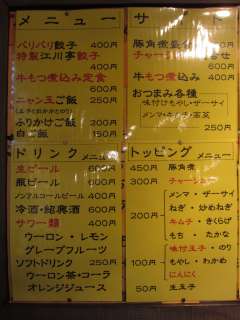 メニュー
パリパリ餃子 400円
特製江川亭餃子 400円
牛もつ煮込み定食 600円
ニャン玉ご飯 250円
ふりかけご飯 200円
白ご飯 150円
サイド
豚角煮 600円
チャー
牛もつ煮込み 400円
おつまみ各種
味付けもやし・ザーサイ
メンマ・キムチ
250円
ドリンクメニュー
生ビール 600円
瓶ビール 600円
ノンアルコールビール 400円
冷酒・紹興酒 600円
サワー類 400円
ウーロン・レモン
グレープフルーツ
ソフトドリンク 250円
ウーロン茶・コーラ
オレンジジュース
トッピングメニュー
450円 豚角煮
300円 チャーシュー
200円 メンマ・ザーサイ
ねぎ・炒めねぎ
キムチ・きくらげ
もち・なっとう
100円 味付玉子・のり
もやし・わかめ
にんにく
50円 生玉子